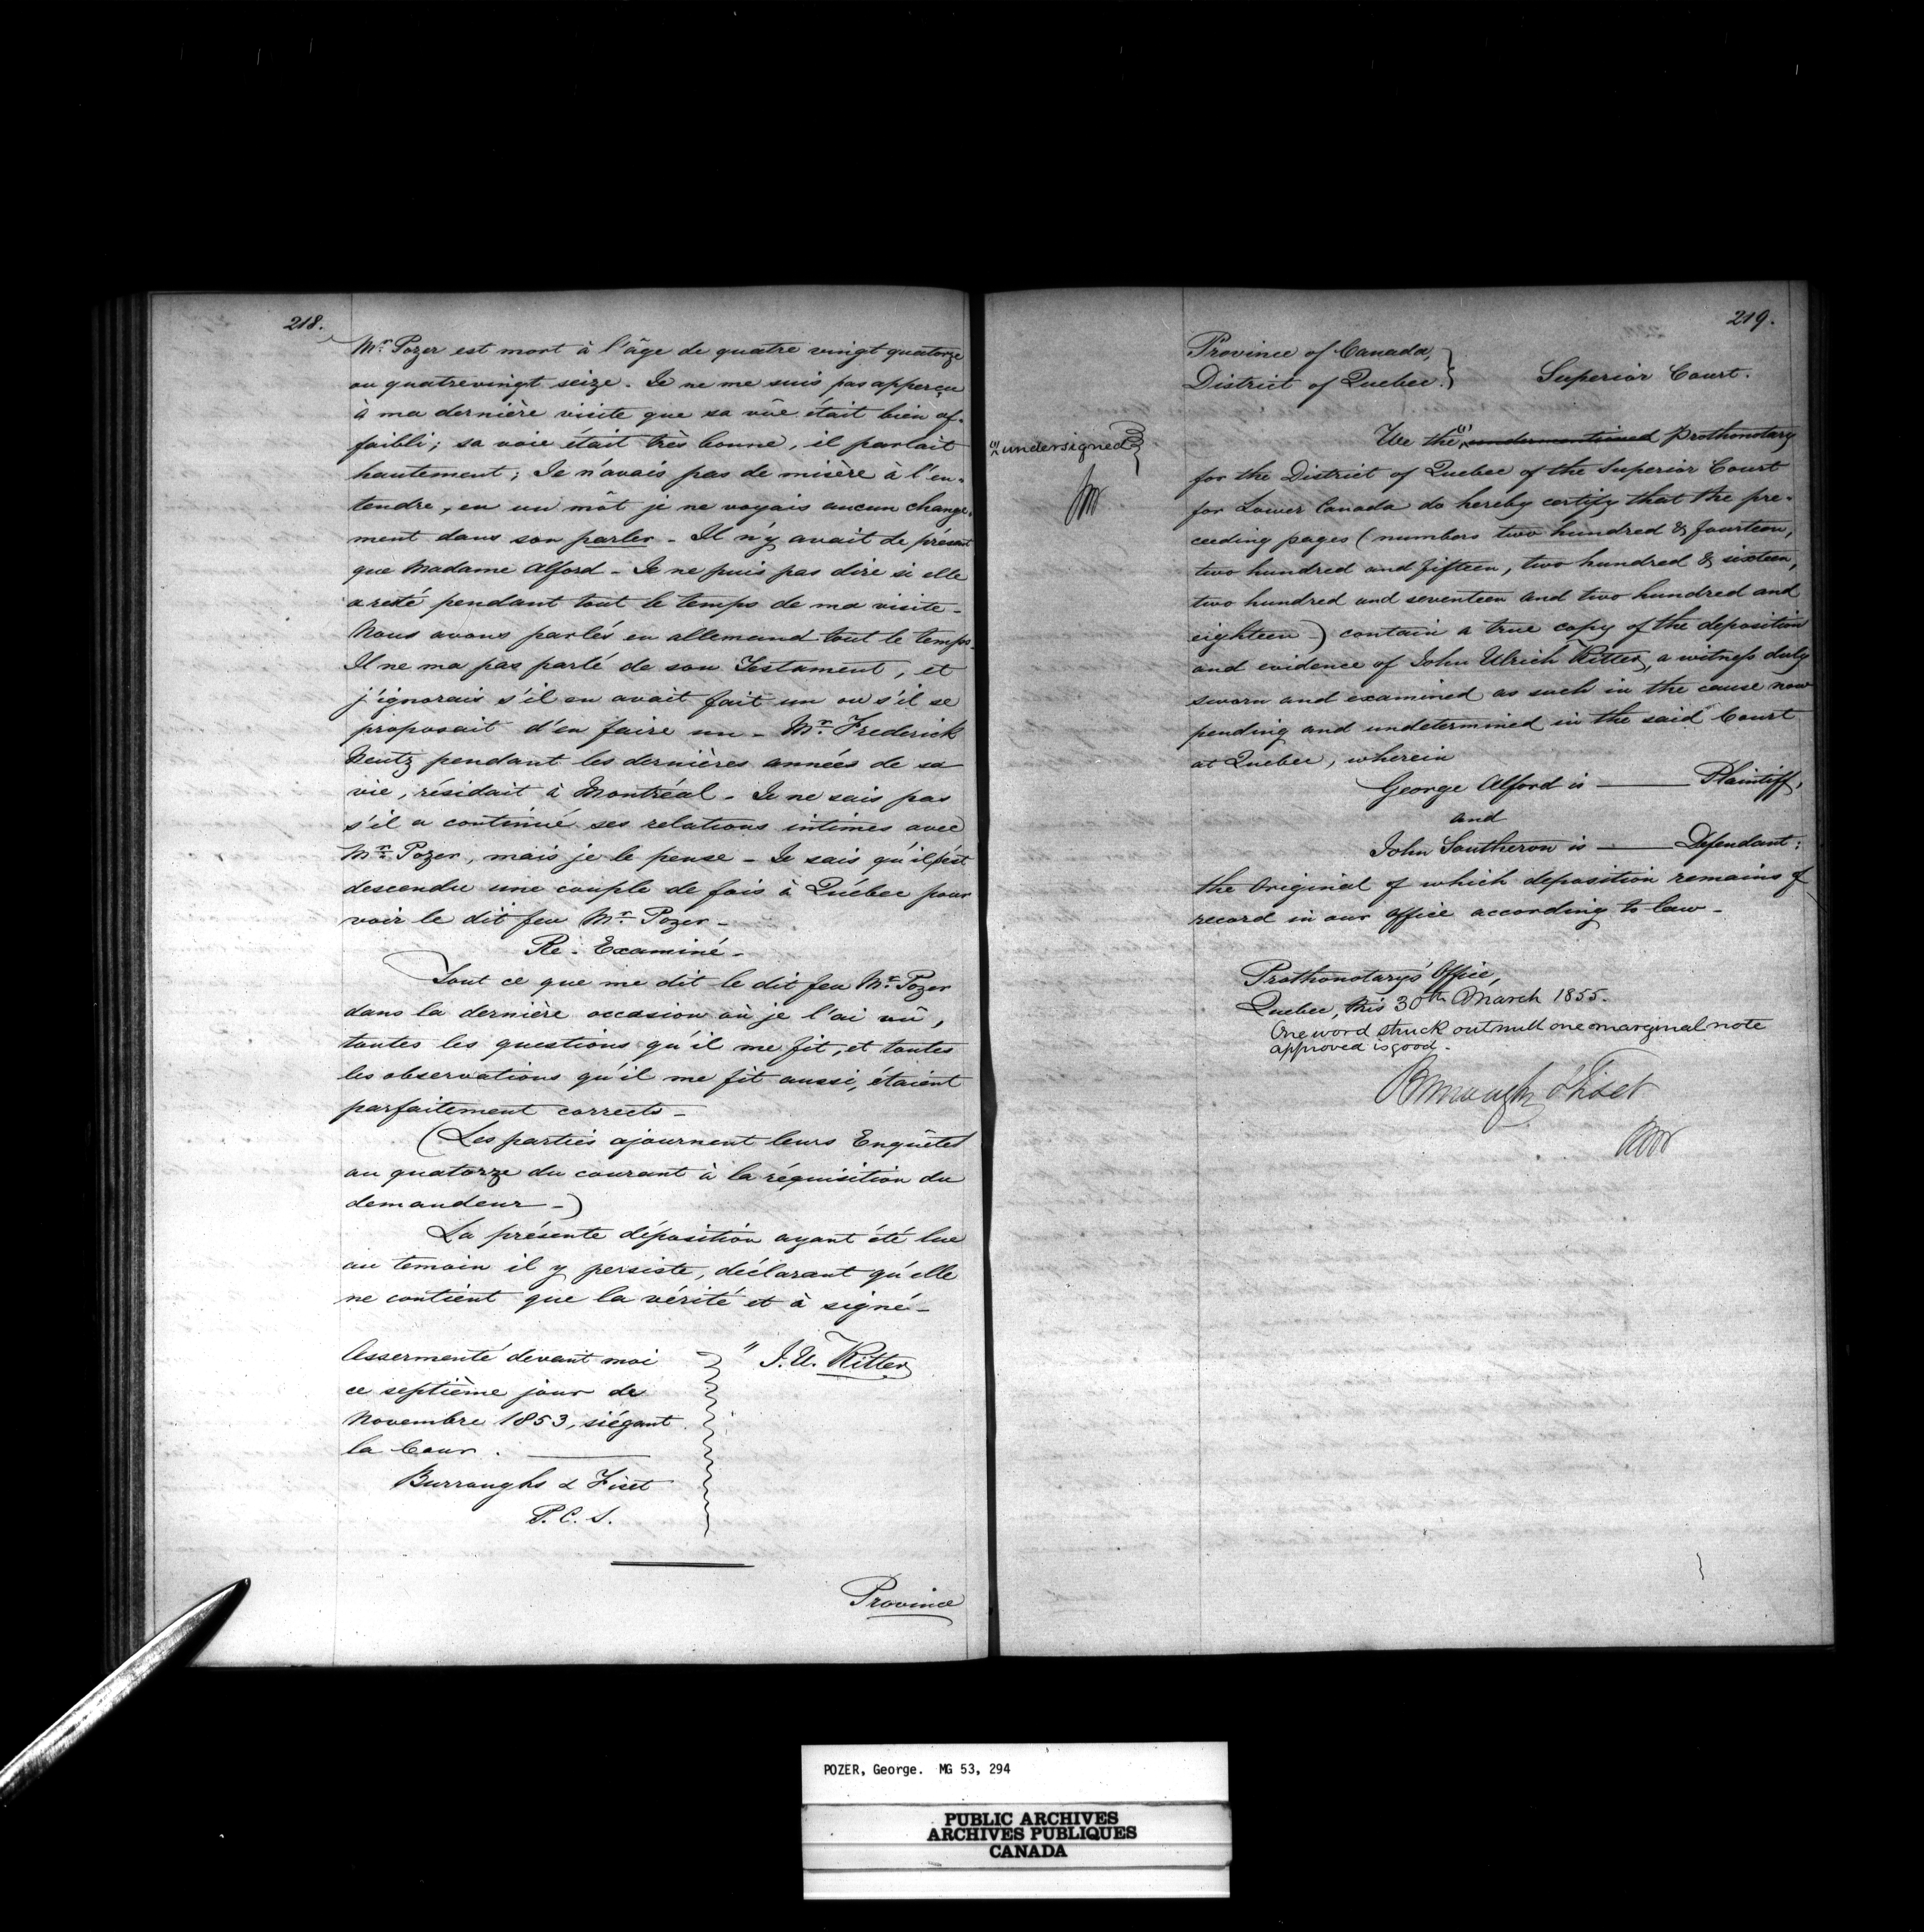 218.
Mr. Pozer est mort à l'âge de quatre vingt quatorze
ou quatrevingt seize. Je ne me suis pas apperçu
à ma dernière visite que sa vûe était bien af-
faibli; sa voie était très bonne, il parlait
hautement; Je n'avais pas de misère à l'en-
tendre, en un môt je ne voyais aucun change-
ment dans son parler - Il n'y avait de présent
que Madame Alford - Je ne puis pas dire si elle
a resté pendant tout le temps de ma visite -
Nous avons parlés en allemand tout le temps -
Il ne ma pas parlé de son Testament, et
j'ignorais s'il en avait fait un ou s'il se
proposait d'en faire un - Mr. Frederick
pendant les dernières années de sa
vie, résidait à Montréal - Je ne sais pas
s'il a continué ses relations intimes avec
Mr. Pozer, mais je le pense - Je sais qu'il s'est
descendu une couple de fois à Québec pour
voir le dit feu Mr. Pozer -
Re-Examiné -
Tout ce que me dit le dit feu Mr. Pozer
dans la dernière occasion où je l'ai vû,
toutes les questions qu'il me fit, et toutes
les observations qu'il me fit aussi, étaient
parfaitement corrects -
(Les parties ajournent leurs Enquêtes
au quatorze du courant à la réquisition du
demandeur -)
La présente déposition ayant été lue
au temoin il y persiste, déclarant qu'elle
ne contient que la vérité et à signé -
Assermenté devant moi
ce septième jour de
Novembre 1853, siégant
la Cour.
" J. U. Ritter
Burroughs & Fiset
P. C. S.
Province
219.
Province of Canada,
District of Quebec. } Superior Court.
(1) undersigned
We the (1) undermentioned Prothonotary
for the District of Quebec of the Superior Court
for Lower Canada do hereby certify that the pre-
ceeding pages (numbers two hundred & fourteen,
two hundred and fifteen, two hundred & sixteen,
two hundred and seventeen and two hundred and
eighteen -) contain a true copy of the deposition
and evidence of John Ulrich Ritter, a witness duly
sworn and examined as such in the cause now
pending and undetermined in the said Court
at Quebec, wherein
George Alford is ——— Plaintiff,
and
John Southeron is ——— Defendant:
the Original of which deposition remains of
record in our Office according to law -
Prothonotary's Office,
Quebec, this 30th March 1855.
One word struck out null one marginal note
approved is good -
Burroughs & Fiset
POZER, George. MG 53, 294
PUBLIC ARCHIVES
ARCHIVES PUBLIQUES
CANADA